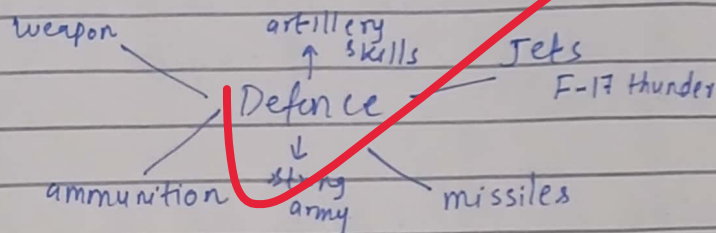 weapon
artillery
skills
Jets
F-17 thunder
Defence
ammunition
strong
army
missiles